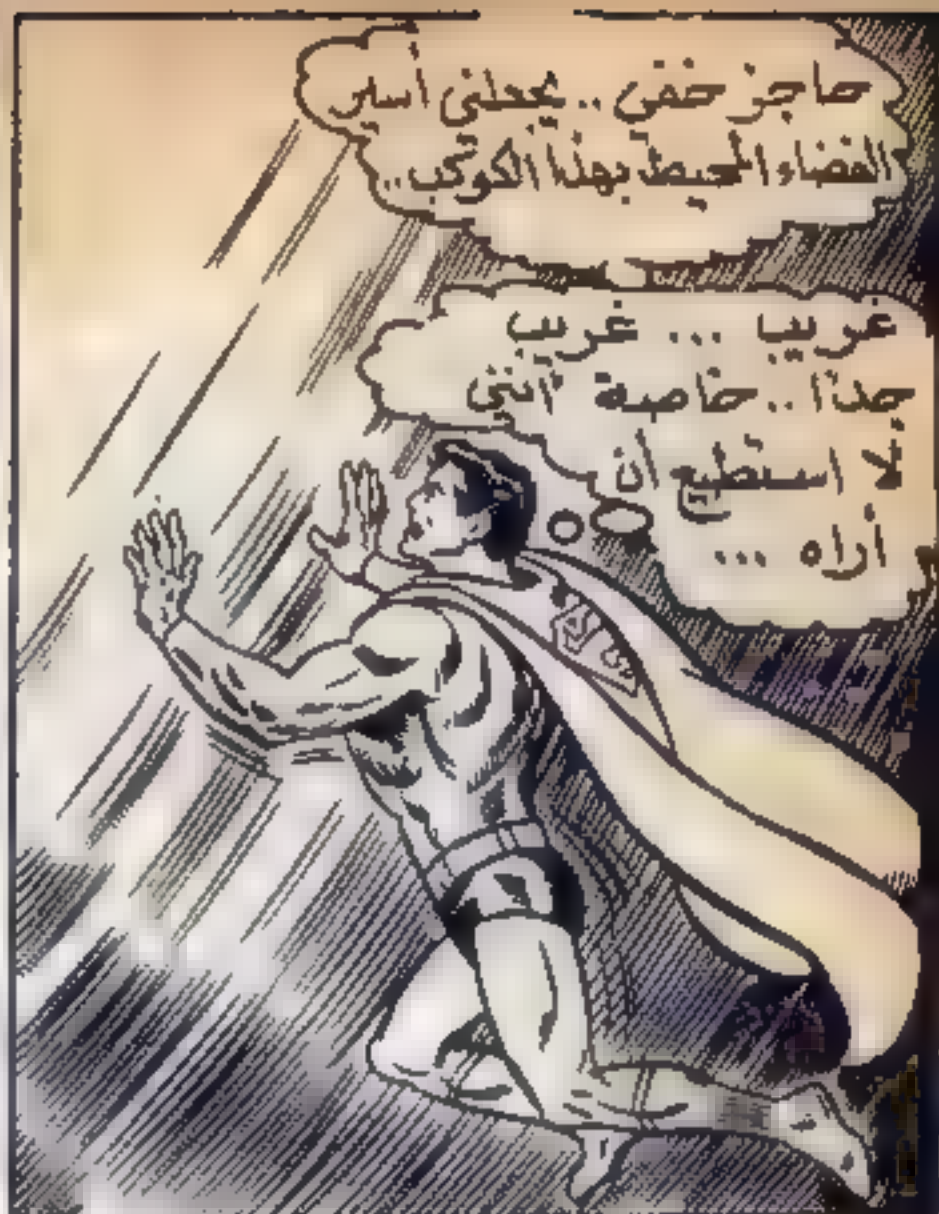 حاجز خفي .. يجعلني أسير
الفضاء المحيط بهذا الكوكب ..
غريب ... غريب
جدًا .. خاصة أننى
لا استطيع أن
أراه ...